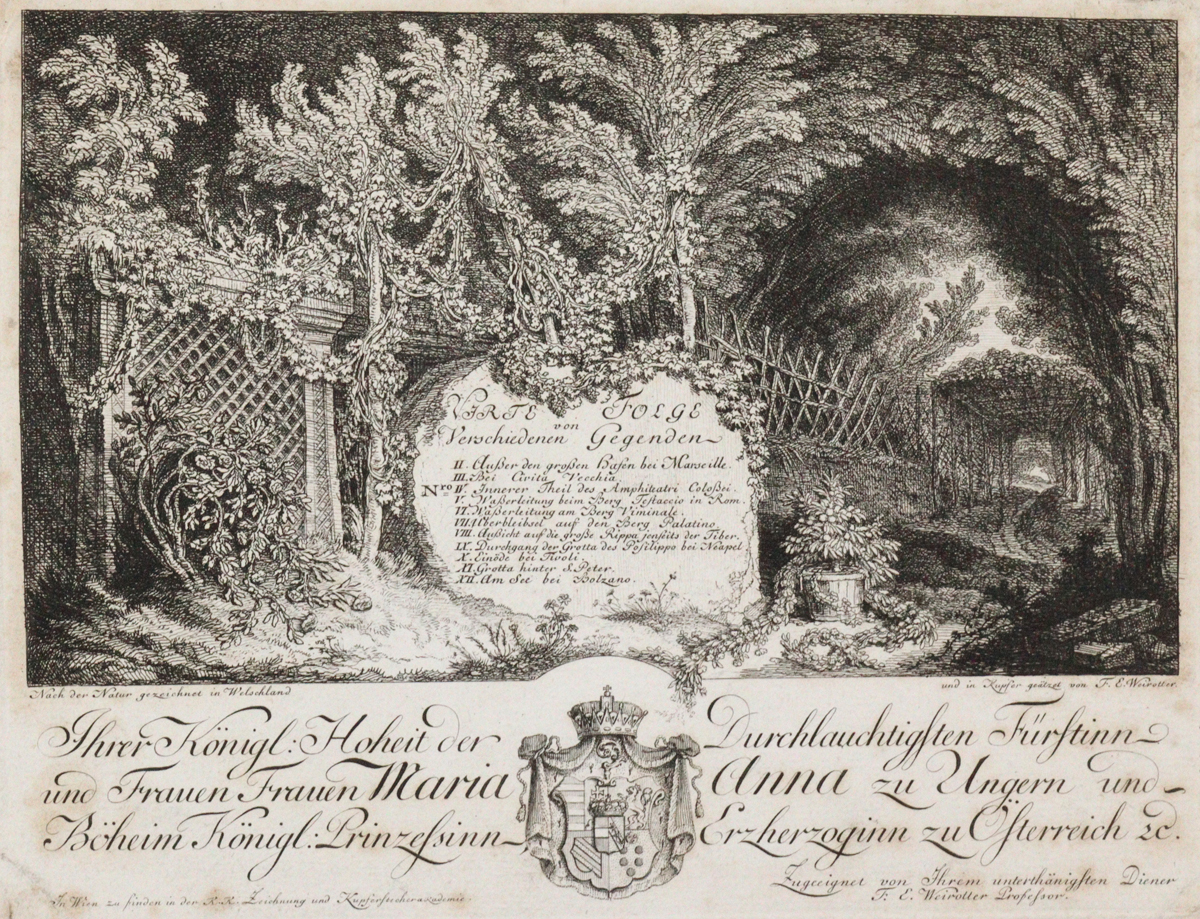 VIRTE FOLGE
von
Verschiedenen Gegenden
II. Außer den großen Hafen bei Marseille.
III. Bei Civita Vecchia.
Nro IV. Innerer Theil des Amphiteatri Coloßei.
V. Waßerleitung beim Berg Testaccio in Rom.
VI. Waßerleitung am Berg Viminale.
VII. Uberbleibsel auf den Berg Palatino.
VIII. Außicht auf die große Rippa jenseits der Tiber.
IX. Durchgang der Grotta des Posilippo bei Neapel
X. Einöde bei Tivoli.
XI. Grotta hinter S. Peter.
XII. Am See bei Bolzano.
Nach der Natur gezeichnet in Welschland
und in Kupfer geätzet von F. E. Weirotter.
Ihrer Königl: Hoheit der Durchlauchtigsten Fürstinn
und Frauen Frauen Maria Anna zu Ungern und
Böheim Königl: Prinzessinn Erzherzoginn zu Österreich &c.
Zugeeignet von Ihrem unterthänigsten Diener
F. E. Weirotter Professor.
In Wien zu finden in der K. K. Zeichnung und Kupferstecherakademie.